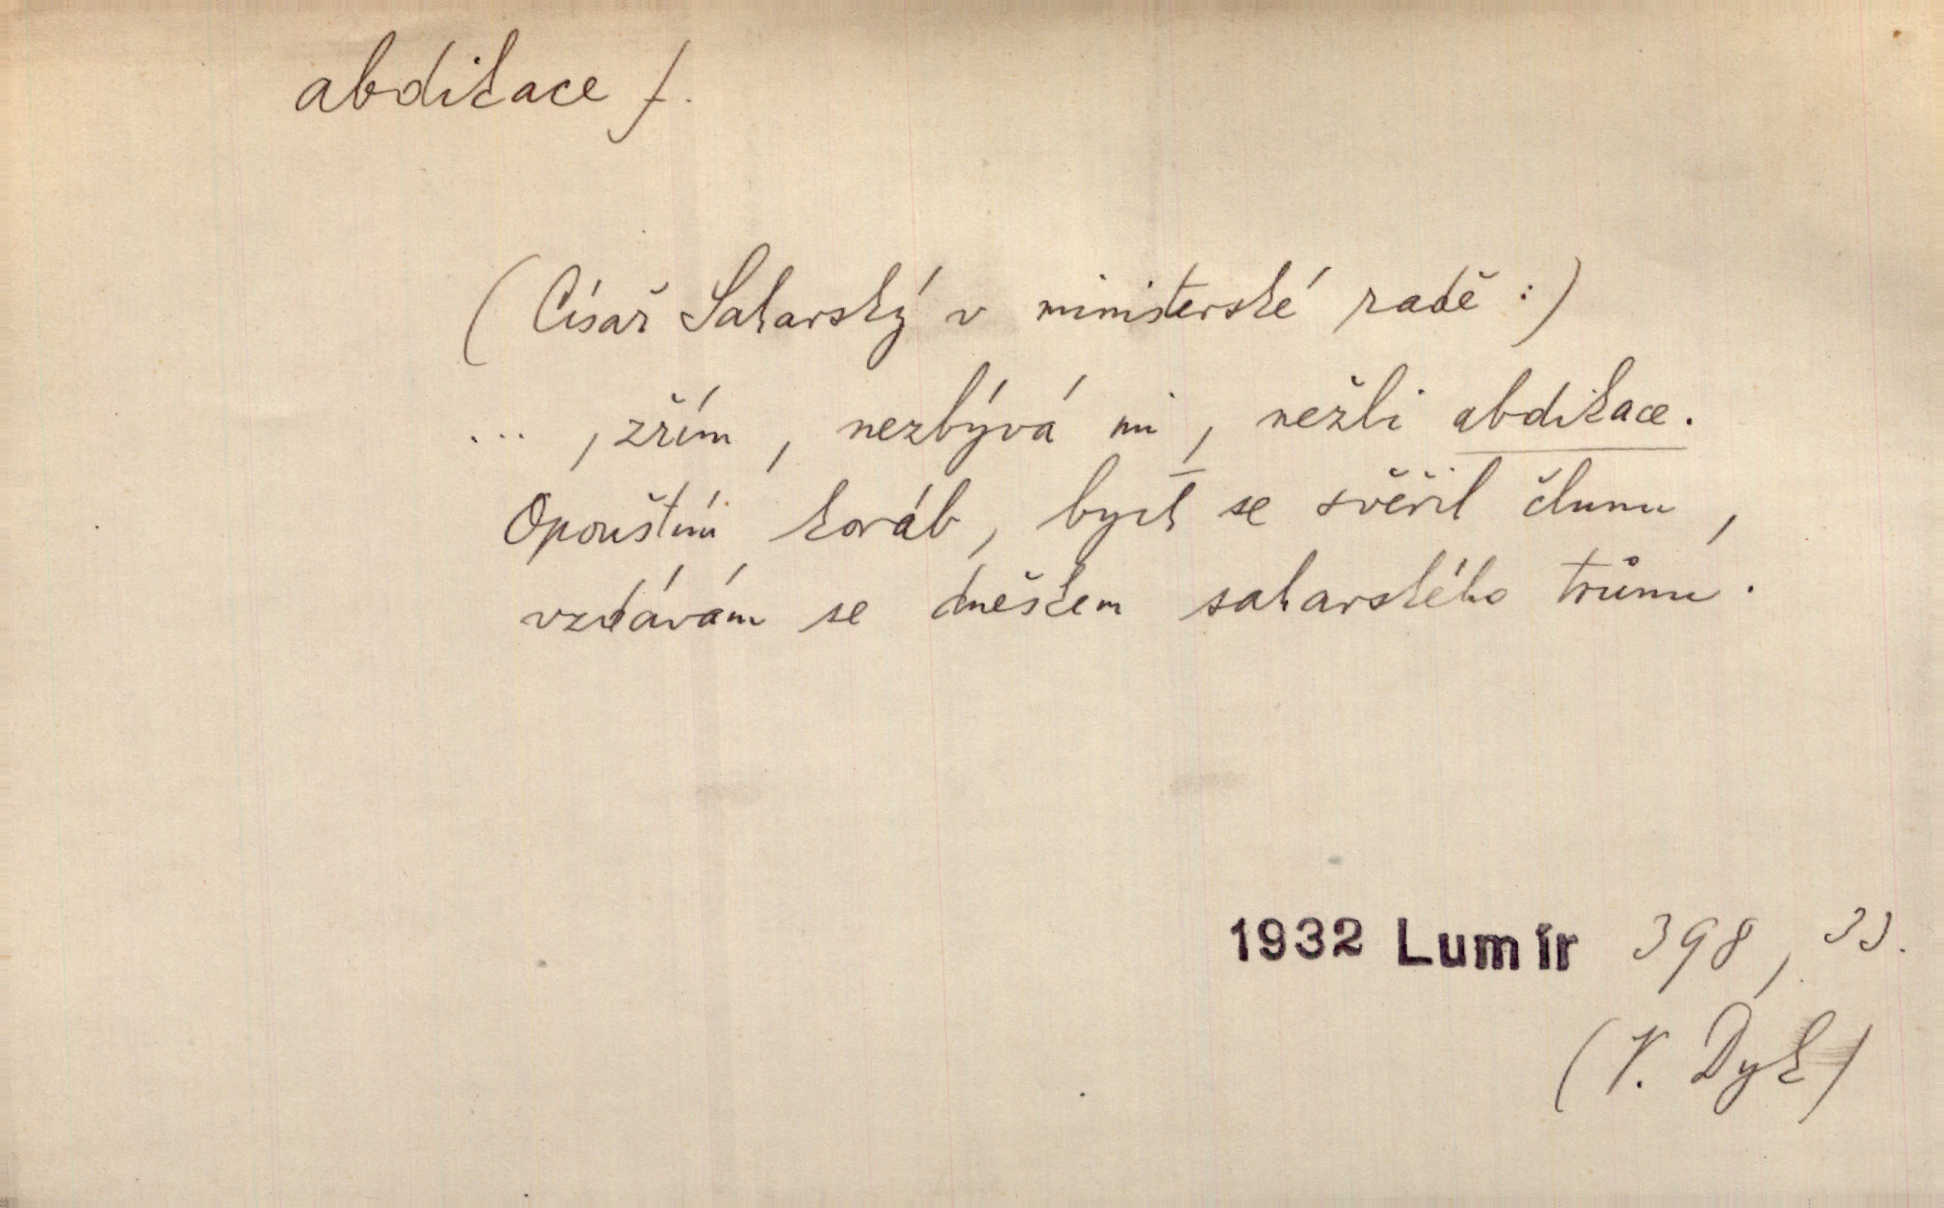 abdikace f.
(Císař Saharský v ministerské radě :)
... , zřím , nezbývá mi , nežli abdikace.
Opouštím koráb, bych se svěřil člunu ,
vzdávám se dneškem saharského trůnu .
1932 Lumír 398, 33.
(V. Dyk)